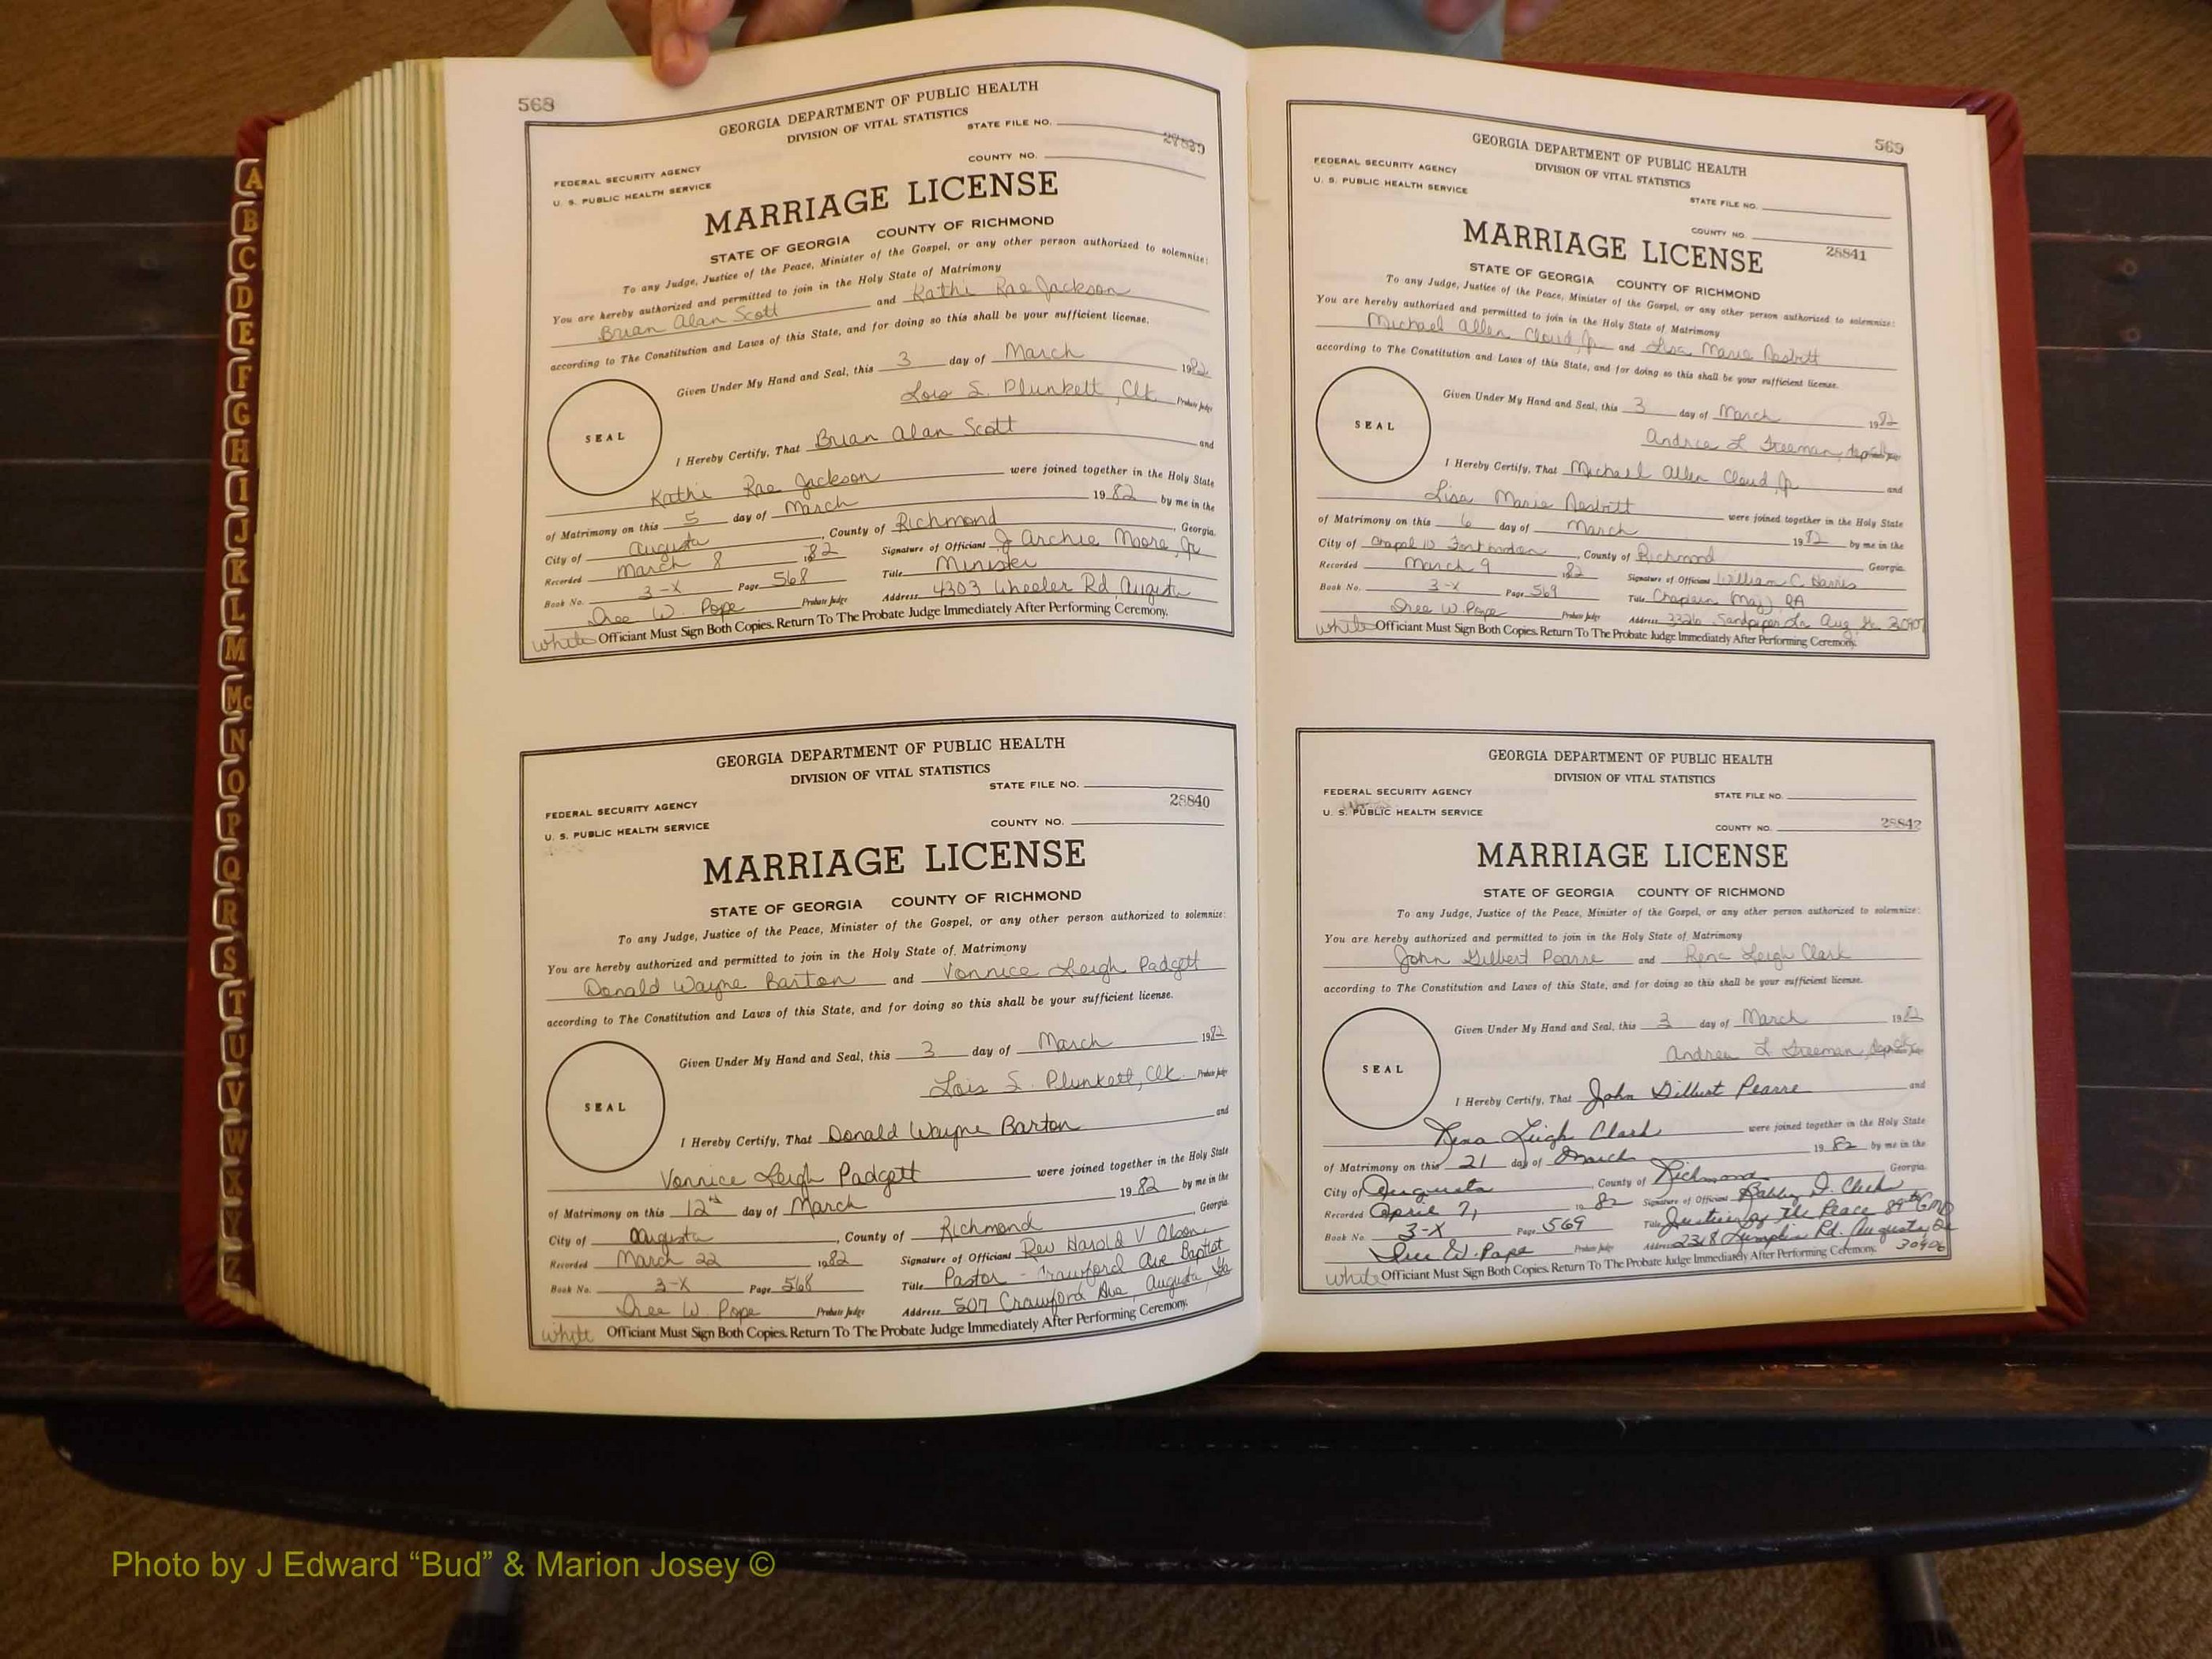 568
GEORGIA DEPARTMENT OF PUBLIC HEALTH
DIVISION OF VITAL STATISTICS
STATE FILE NO.
FEDERAL SECURITY AGENCY
COUNTY NO.
U. S. PUBLIC HEALTH SERVICE
MARRIAGE LICENSE
STATE OF GEORGIA COUNTY OF RICHMOND
To any Judge, Justice of the Peace, Minister of the Gospel, or any other person authorized to solemnize:
You are hereby authorized and permitted to join in the Holy State of Matrimony
Brian Alan Scott and Kathi Rae Jackson
according to The Constitution and Laws of this State, and for doing so this shall be your sufficient license.
Given Under My Hand and Seal, this 3 day of March 1982
Lois S. Plunkett, Clk Probate Judge
SEAL
I Hereby Certify, That Brian Alan Scott and
Kathi Rae Jackson were joined together in the Holy State
of Matrimony on this 5 day of March 1982 by me in the
City of Augusta, County of Richmond, Georgia.
Recorded March 8 1982 Signature of Officiant J Archie Moore, Jr
Book No. 3-X Page 568 Title Minister
Dree W. Pope Probate Judge Address 4303 Wheeler Rd, Augusta
white Officiant Must Sign Both Copies. Return To The Probate Judge Immediately After Performing Ceremony.
GEORGIA DEPARTMENT OF PUBLIC HEALTH
DIVISION OF VITAL STATISTICS
STATE FILE NO.
FEDERAL SECURITY AGENCY
28840
U. S. PUBLIC HEALTH SERVICE
COUNTY NO.
MARRIAGE LICENSE
STATE OF GEORGIA COUNTY OF RICHMOND
To any Judge, Justice of the Peace, Minister of the Gospel, or any other person authorized to solemnize:
You are hereby authorized and permitted to join in the Holy State of Matrimony
Donald Wayne Barton and Vonnice Leigh Padgett
according to The Constitution and Laws of this State, and for doing so this shall be your sufficient license.
Given Under My Hand and Seal, this 3 day of March 1982
Lois S. Plunkett, Clk. Probate Judge
SEAL
I Hereby Certify, That Donald Wayne Barton and
Vonnice Leigh Padgett were joined together in the Holy State
of Matrimony on this 12th day of March 1982 by me in the
City of Augusta, County of Richmond, Georgia.
Recorded March 22 1982 Signature of Officiant Rev Harold V Olson
Book No. 3-X Page 568 Title Pastor - Crawford Ave Baptist
Dree W. Pope Probate Judge Address 507 Crawford Ave, Augusta, Ga
white Officiant Must Sign Both Copies. Return To The Probate Judge Immediately After Performing Ceremony.
569
GEORGIA DEPARTMENT OF PUBLIC HEALTH
DIVISION OF VITAL STATISTICS
FEDERAL SECURITY AGENCY
U. S. PUBLIC HEALTH SERVICE
STATE FILE NO.
COUNTY NO.
28841
MARRIAGE LICENSE
STATE OF GEORGIA COUNTY OF RICHMOND
To any Judge, Justice of the Peace, Minister of the Gospel, or any other person authorized to solemnize:
You are hereby authorized and permitted to join in the Holy State of Matrimony
Michael Allen Cloud, Jr and Lisa Marie Nesbitt
according to The Constitution and Laws of this State, and for doing so this shall be your sufficient license.
Given Under My Hand and Seal, this 3 day of March 1982
Andrea L Freeman,
SEAL
I Hereby Certify, That Michael Allen Cloud, Jr and
Lisa Marie Nesbitt were joined together in the Holy State
of Matrimony on this 6 day of March 1982 by me in the
City of Chapel 10 Fort Gordon, County of Richmond Georgia.
Recorded March 9 1982 Signature of Officiant William C. Harris
Book No. 3-X Page 569 Title Chaplain (Maj)
Dree W. Pope Probate Judge Address 3326 Sandpiper Ln Aug Ga 30907
white Officiant Must Sign Both Copies. Return To The Probate Judge Immediately After Performing Ceremony.
GEORGIA DEPARTMENT OF PUBLIC HEALTH
DIVISION OF VITAL STATISTICS
FEDERAL SECURITY AGENCY
STATE FILE NO.
U. S. PUBLIC HEALTH SERVICE
28842
COUNTY NO.
MARRIAGE LICENSE
STATE OF GEORGIA COUNTY OF RICHMOND
To any Judge, Justice of the Peace, Minister of the Gospel, or any other person authorized to solemnize:
You are hereby authorized and permitted to join in the Holy State of Matrimony
John Gilbert Pearre and Rena Leigh Clark
according to The Constitution and Laws of this State, and for doing so this shall be your sufficient license.
Given Under My Hand and Seal, this 3 day of March 1982
Andrea L Freeman,
SEAL
I Hereby Certify, That John Gilbert Pearre and
Rena Leigh Clark were joined together in the Holy State
of Matrimony on this 21 day of March 1982 by me in the
City of Augusta, County of Richmond Georgia.
Recorded April 7, 1982 Signature of Officiant
Book No. 3-X Page 569 Title Justice of the Peace 89th GMD
Dree W. Pope Probate Judge Address 2318 Lumpkin Rd. Augusta, Ga 30906
white Officiant Must Sign Both Copies. Return To The Probate Judge Immediately After Performing Ceremony.
A
B
C
D
E
F
G
H
I
J
K
L
M
Mc
N
O
P
Q
R
S
T
U
V
W
X
Y
Z
Photo by J Edward “Bud” & Marion Josey ©